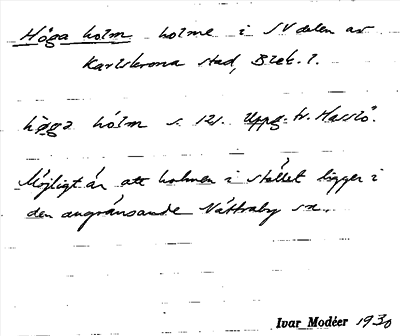 Höga holm holme i SV delen av
Karlskrona stad, Blek. l.
høga hólm s. 121. Uppg. fr. Hasslö.
Möjligt är att holmen i stället ligger i
den angränsande Nättraby sn.
Ivar Modéer 1930